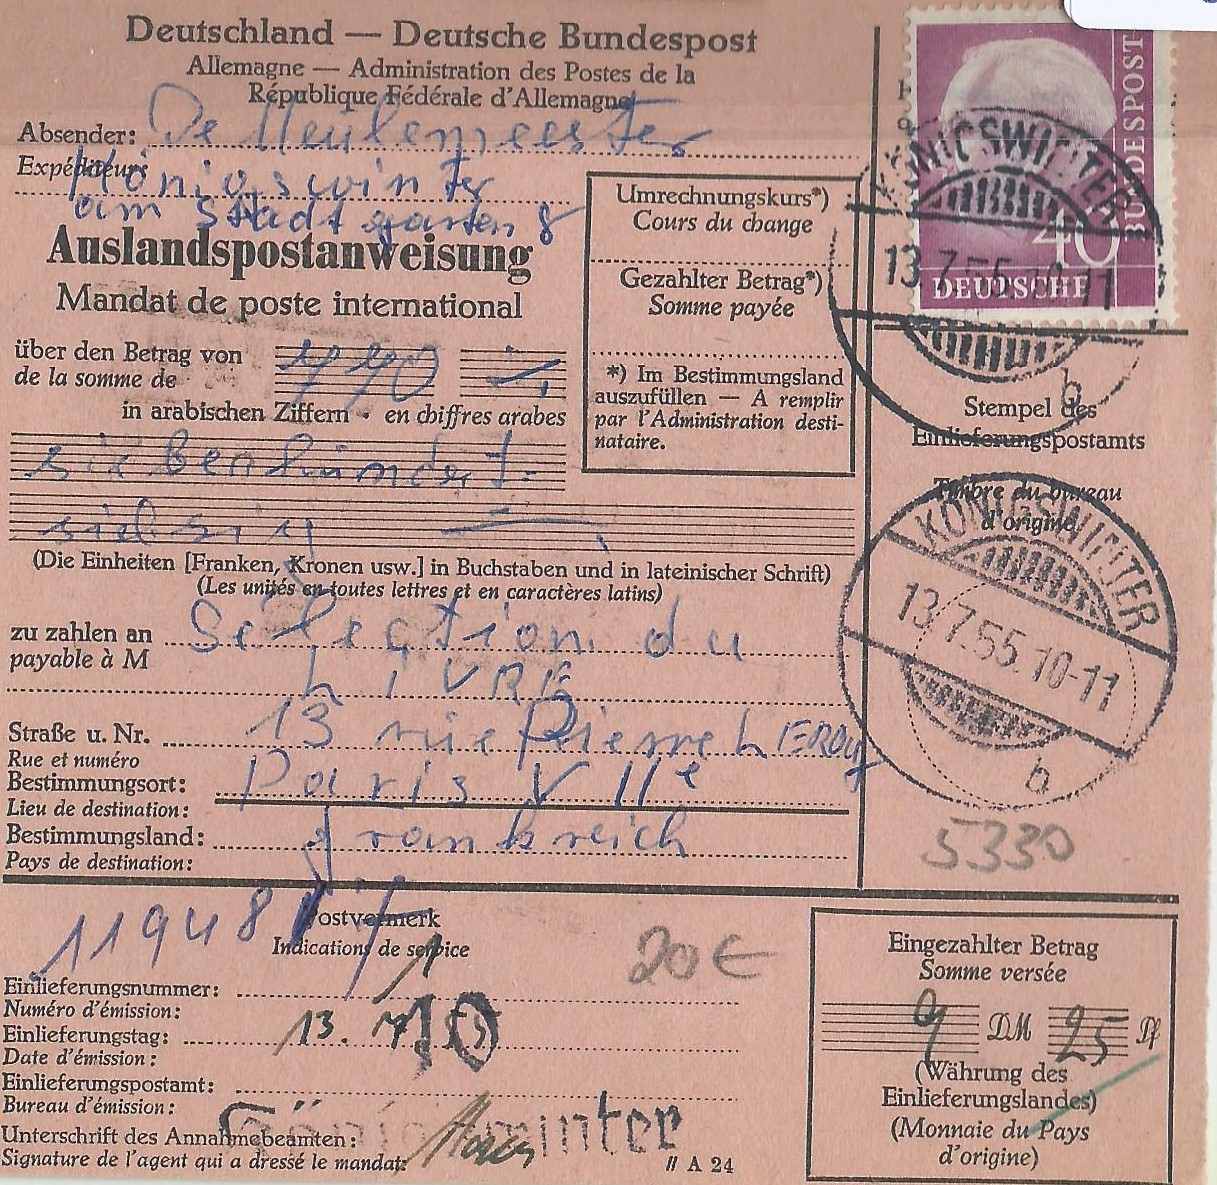 Deutschland — Deutsche Bundespost
Allemagne — Administration des Postes de la
République Fédérale d'Allemagne
Absender: De Meulemeester
Expéditeur: Königswinter
am Stadtgarten 8
Auslandspostanweisung
Mandat de poste international
über den Betrag von
de la somme de 770
in arabischen Ziffern • en chiffres arabes
siebenhundert-
siebzig
(Die Einheiten [Franken, Kronen usw.] in Buchstaben und in lateinischer Schrift)
(Les unités en toutes lettres et en caractères latins)
zu zahlen an Sélection du
payable à M LIVRE
Straße u. Nr. 13 rue Pierre LEROY
Rue et numéro
Bestimmungsort: Paris VIIe
Lieu de destination:
Bestimmungsland: Frankreich
Pays de destination:
Umrechnungskurs*)
Cours du change
Gezahlter Betrag*)
Somme payée
*) Im Bestimmungsland
auszufüllen — A remplir
par l'Administration desti-
nataire.
BUNDESPOST
40
DEUTSCHE
KÖNIGSWINTER
13.7.55.10-11
b
Stempel des
Einlieferungspostamts
Timbre du bureau
d'origine
KÖNIGSWINTER
13.7.55.10-11
b
5330
11948
Postvermerk
Indications de service
20€
Einlieferungsnummer:
Numéro d'émission:
Einlieferungstag: 13. 7.
Date d'émission:
Einlieferungspostamt:
Bureau d'émission:
Königswinter
Unterschrift des Annahmebeamten:
Signature de l'agent qui a dressé le mandat:
// A 24
Eingezahlter Betrag
Somme versée
9 DM 25 Pf
(Währung des
Einlieferungslandes)
(Monnaie du Pays
d'origine)